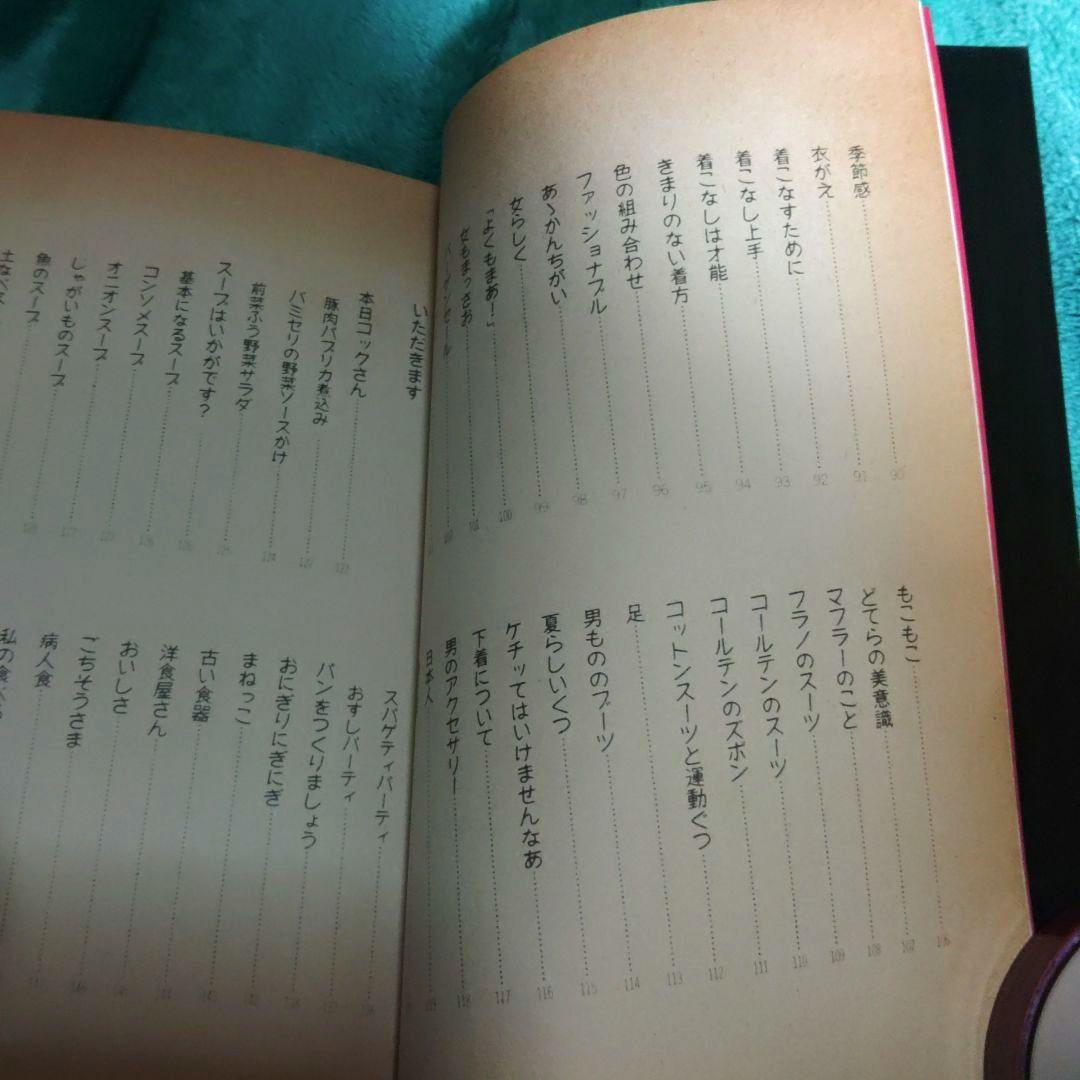 季節感 90
衣がえ 91
着こなすために 92
着こなし上手 93
着こなしは才能 94
きまりのない着方 95
色の組み合わせ 96
ファッショナブル 97
あゝかんちがい 98
女らしく 99
「よくもまあ！」 100
女もまっさお 101
バーゲンセール
もこもこ 106
どてらの美意識 107
マフラーのこと 108
フラノのスーツ 109
コールテンのスーツ 110
コールテンのズボン 111
コットンスーツと運動ぐつ 112
足 113
男もののブーツ 114
夏らしいくつ 115
ケチってはいけませんなあ 116
下着について 117
男のアクセサリー 118
日本人 119
いただきます
本日コックさん
豚肉パプリカ煮込み
バミセリの野菜ソースかけ 124
前菜ふう野菜サラダ
スープはいかがです？
基本になるスープ
コンソメスープ
オニオンスープ
じゃがいものスープ
魚のスープ
スパゲティパーティ
おすしパーティ
パンをつくりましょう
おにぎりにぎにぎ
まねっこ
古い食器
洋食屋さん
おいしさ
ごちそうさま
病人食